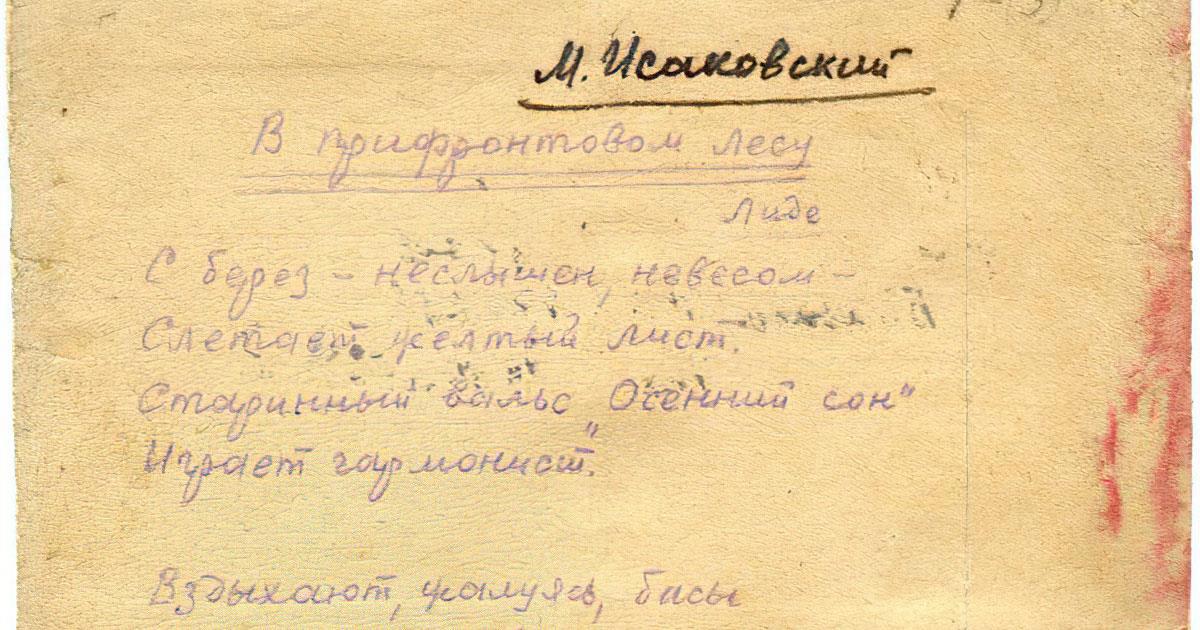 М. Исаковский
В прифронтовом лесу
Лиде
С берез – неслышен, невесом –
Слетает желтый лист.
Старинный вальс „Осенний сон"
Играет гармонист.
Вздыхают, жалуясь, басы